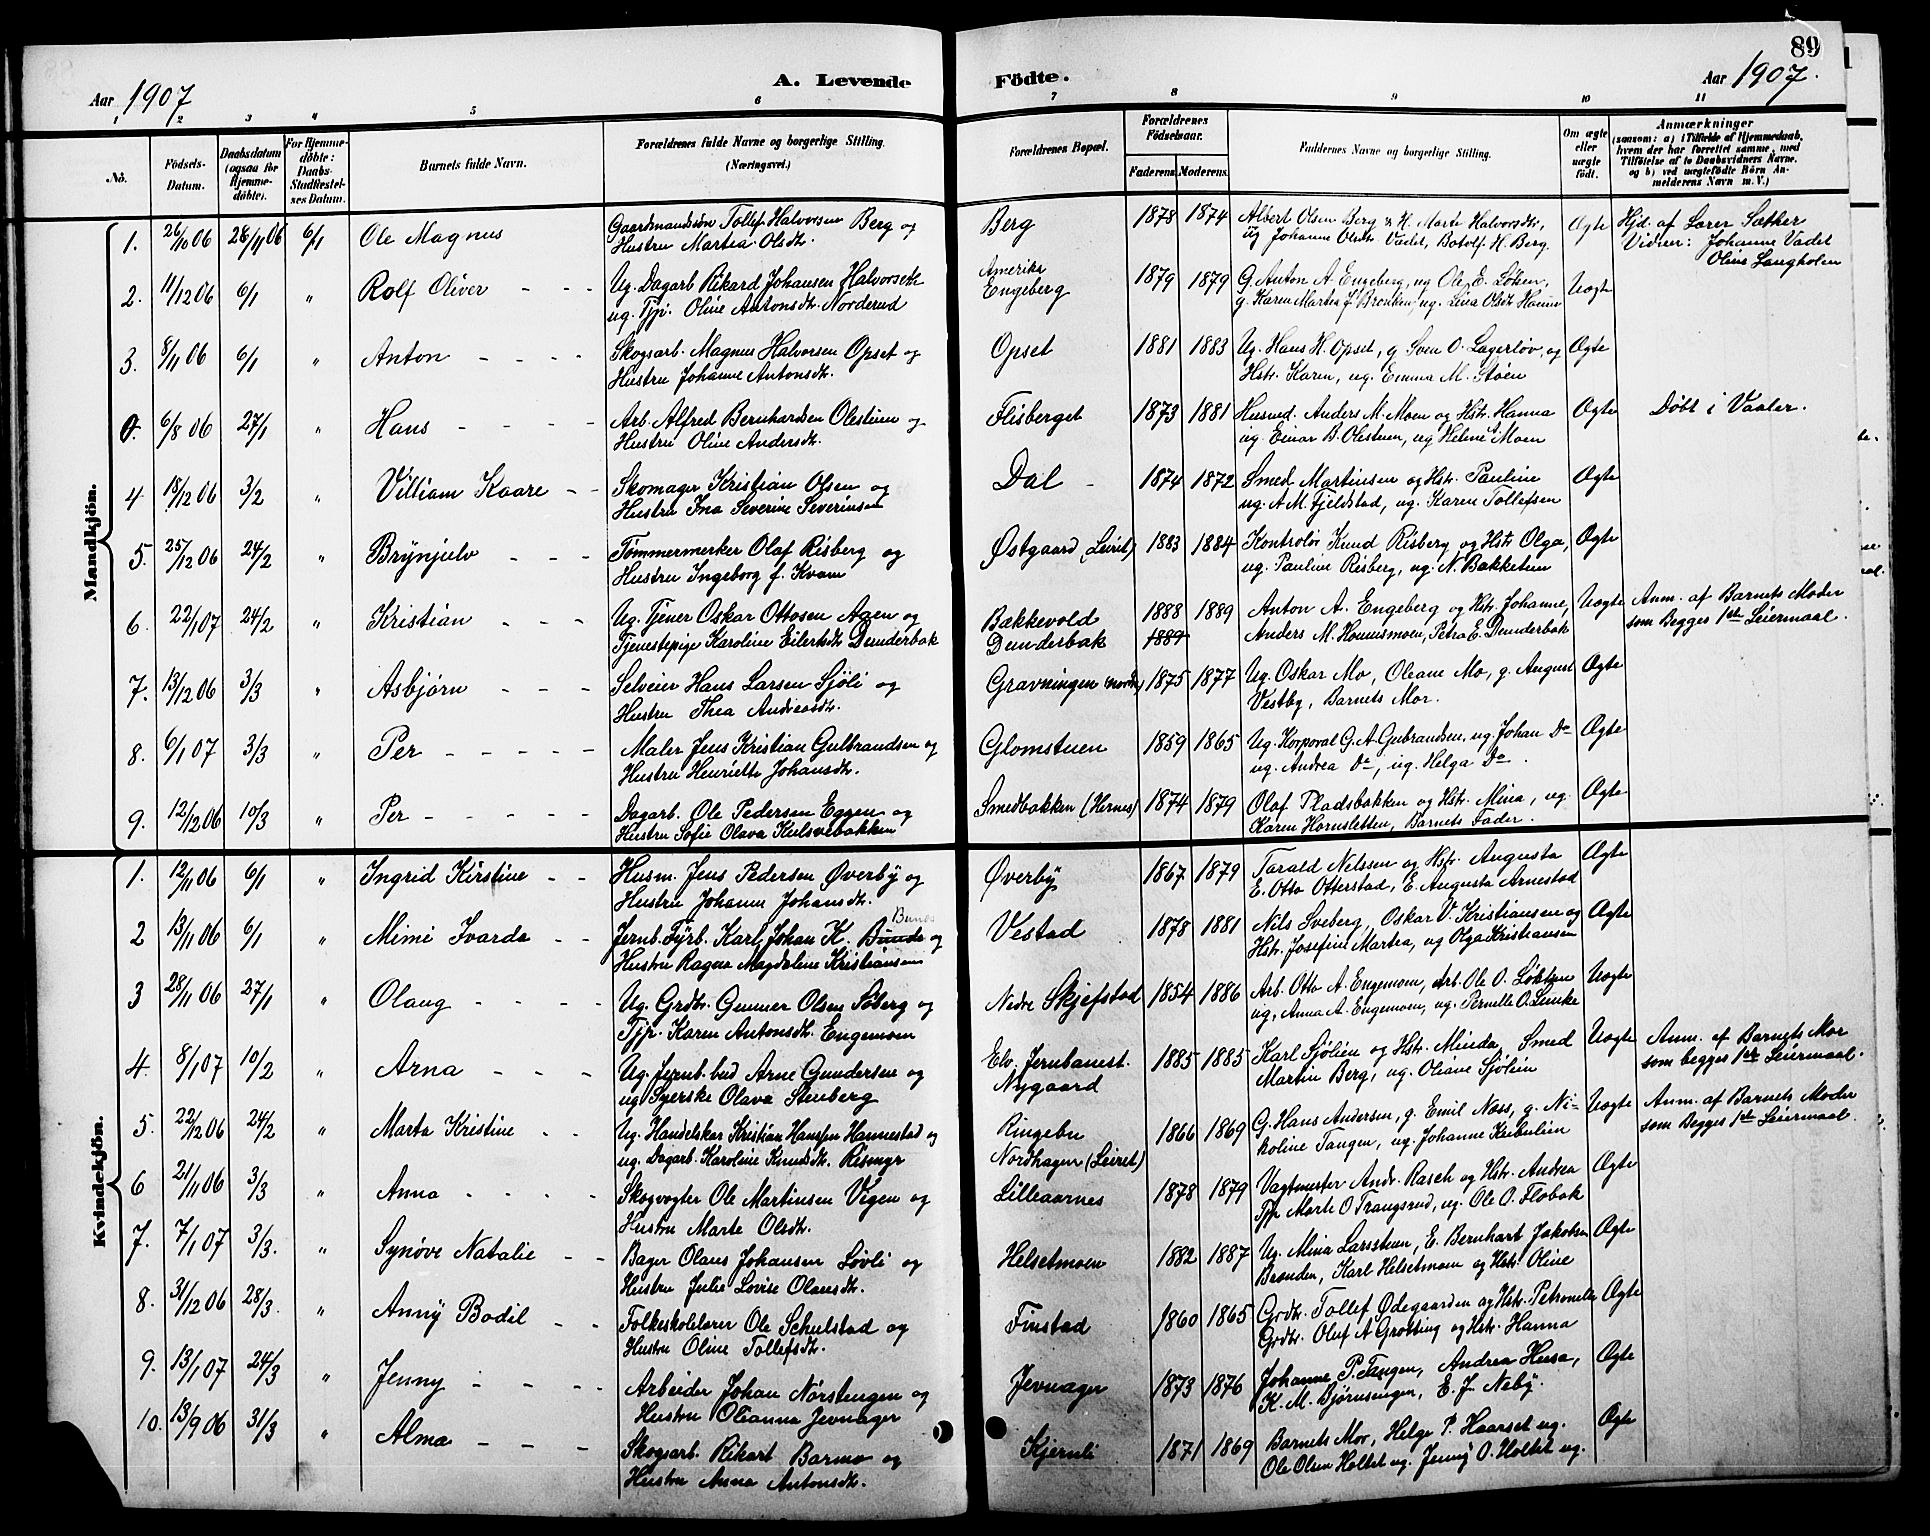 89
Aar 1907 A. Levende Födte. Aar 1907.
1 2 3 4 5 6 7 8 9 10 11
No. Födsels-Datum. Daabsdatum (ogsaa for Hjemme-døbte). For Hjemme-døbte: Daabs-Stadfestel-ses Datum. Barnets fulde Navn. Forældrenes fulde Navne og borgerlige Stilling. (Næringsvei.) Forældrenes Bopæl. Forældrenes Födselsaar. Faderens. Moderens. Faddernes Navne og borgerlige Stilling. Om ægte eller uægte födt. Anmærkninger
(saasom: a) i Tilfælde af Hjemmedaab,
hvem der har forrettet samme, med
Tilföielse af to Daabsvidners Navne,
og b) ved uægtefödte Börn An-
melderens Navn m. V.)
Mandkjön.
1. 26/10 06 26/11 06 6/1 Ole Magnus Gaardmandssøn Tollef Halvorsen Berg og Berg 1878 1874 Albert Olsen Berg & H. Marte Halvorsdtr, Ægte Hjd. af Lærer Sæther
Hustru Martea Olsdtr. ug Johanne Olsdtr Vadet, Botolf H. Berg. Vidner: Johanne Vadet
Olius Langholen
2. 11/12 06 6/1 " Rolf Oliver - - - Ug. Dagarb Rikard Johansen Halvorseth Amerika 1879 1879 G. Anton A. Engeberg, ug Ole E. Løken, Uægte
ug. Tjp. Oline Antonsdtr. Norderud Engeberg g. Karen Martea J. Bronken, ug. Lina Olsdtr Hanns
3. 8/11 06 6/1 " Anton - - - - Skogsarb. Magnus Halvorsen Opset og Opset 1881 1883 Ug. Hans H. Opset, g Sven O. Lagerløv, og Ægte
Hustru Johanne Antonsdtr. Hstr. Karen, ug. Emma M. Støen
0. 6/8 06 27/1 " Hans - - - - Arb. Alfred Bernhardsen Olestuen og Flisberget 1873 1881 Husmd. Anders M. Moen og Hstr. Hanna Ægte Døbt i Vaaler.
Hustru Oline Andersdtr. ug. Einar B. Olestuen, ug Helene A. Moen
4. 15/12 06 3/2 " Villiam Kaare - - Skomager Kristian Olsen og Dal - 1874 1872 Smed Martinsen og Hstr. Pauline Ægte
Hustru Ina Severine Severinsen ug. A M. Fjeldstad, ug. Karen Tollefsen
5. 25/12 06 24/2 " Brynjulv - - - Tømmermerker Olaf Risberg og Østgaard (Leiret) 1883 1884 Kontrolør Knud Risberg og Hstr Olga, Ægte
Hustru Ingeborg f. Kvam ug. Pauline Risberg, ug. N. Bakketun
6. 22/1 07 24/2 " Kristian - - - Ug. Tjener Oskar Ottosen Aaen og Bakkevold 1888 1889 Anton A. Engeberg og Hstr. Johanne, Uægte Anm. af Barnets Moder
Tjenestepige Karoline Eilertsdtr Dunderbak Dunderbak 1889 Anders M. Hommsmoen, Petra E. Dunderbak som Begges 1ste Leiermaal.
7. 13/12 06 3/3 " Asbjørn - - - Selveier Hans Larsen Sjøli og Gravningen (nordre) 1875 1877 Ug. Oskar Mo, Oleane Mo, g. August Ægte
Hustru Thea Andreasdtr. Vestby, Barnets Mor.
8. 6/1 07 3/3 " Per - - - - - Maler Jens Kristian Gulbrandsen og Glomstuen 1859 1865 Ug. Korporal G. A. Gulbrandsen, ug Johan Do Ægte
Hustru Henriette Johansdtr. ug. Andrea Do, ug. Helga Do.
9. 12/12 06 10/3 " Per - - - - - Dagarb. Ole Pedersen Eggen og Smedbakken (Hernes) 1874 1879 Olaf Pladsbakken og Hstr. Mina, ug. Ægte
Hustru Sofie Olava Kulsvebakken Karen Hornsletten, Barnets Fader.
Kvindekjön.
1. 12/11 06 6/1 " Ingrid Kirstine - - Husm. Jens Pedersen Øverby og Øverby 1867 1879 Tarald Nelssen og Hstr. Augusta Ægte
Hustru Johanne Johansdtr. E. Otto Otterstad, E. Augusta Arnestad
2 13/11 06 6/1 " Mimi Ivarda - - Jernb. Fyrb. Karl Johan K. Bunde Bunes og Vestad 1878 1881 Nils Sveberg, Oskar V. Kristiansen og Ægte
Hustru Ragna Magdalene Kristiansen Hstr. Josefine Martea, ug Olga Kristiansen
3 28/11 06 27/1 " Olaug - - - - Ug. Grdbr. Gunner Olsen Søberg og Nedre Skjefstad 1854 1886 Arb. Otto A. Engemoen, Arb. Ole O. Uægte
Tjp. Karen Antonsdtr. Engemoen ug. Anna A. Engemoen, ug. Pernille O.
4. 8/1 07 10/2 " Arna - - - Ug. Jernb. bud Arne Gundersen og Elv. Jernbanest. 1885 1885 Karl Sjølien og Hstr. Minda, Smed Uægte Anm. af Barnets Mor
ug Syerske Olava Stenberg Nygaard Martin Berg, ug. Oliane Sjølien som begges 1ste Leiermaal.
5. 22/12 06 24/2 " Marta Kristine - - Ug. Handelskar Kristian Hansen Hannestad og Ringebu 1866 1869 G. Hans Andersen, g. Emil Næss, g. Ni- Uægte Anm. af Barnets Moder
ug. Dagarb. Karoline Knudsdtr. Rismyr Nordhagen (Leiret) koline Tangen, ug. Johanne Keibulien som Begges 1ste Leiermaal.
6 21/11 06 3/3 " Anna - - - - Skogvogter Ole Martinsen Vigen og Lilleaarnes 1878 1879 Vagtmester Andr. Rasch og Hstr. Andrea Ægte
Hustru Marte Olsdtr. Tjp Marte O Trangsrud, ug. Ole O. Flobak
7. 7/1 07 3/3. " Synøve Natalie - - Bager Olaus Johansen Løvli og Helsetmoen 1882 1887 Ug. Mina Larsstuen, E. Bernhart Jakobsen Ægte
Hustru Julie Lovise Olausdtr. Brænden, Karl Helsetmoen og Hstr. Oline
8. 31/12 06 28/3. " Anny Bodil - - Folkeskolelærer Ole Schulstad og Finstad 1860 1865 Grdbr. Tollef Ødegaarden og Hstr. Petronelle Ægte
Hustru Oline Tollefsdtr. Grdbr. Oluf A Grøtting og Hstr. Hanna
9. 13/1 07 24/3 " Jenny - - - - Arbeider Johan Nørstengen og Jevnager 1873 1876 Johanne P. Tangen, Andrea Husa, Ægte
Hustru Olianna Jevnager K. M. Bjørnsengen, E. J. Næby.
10. 13/9 06 31/3 " Alma - - - Skogsarb. Rikart Barmo og Kjernli 1871 1869 Barnets Mor, Helge P. Haarset ug. Ægte
Hustru Anna Antonsdtr. Ole Olsen Holtet ug. Jenny O. Holtet ug.